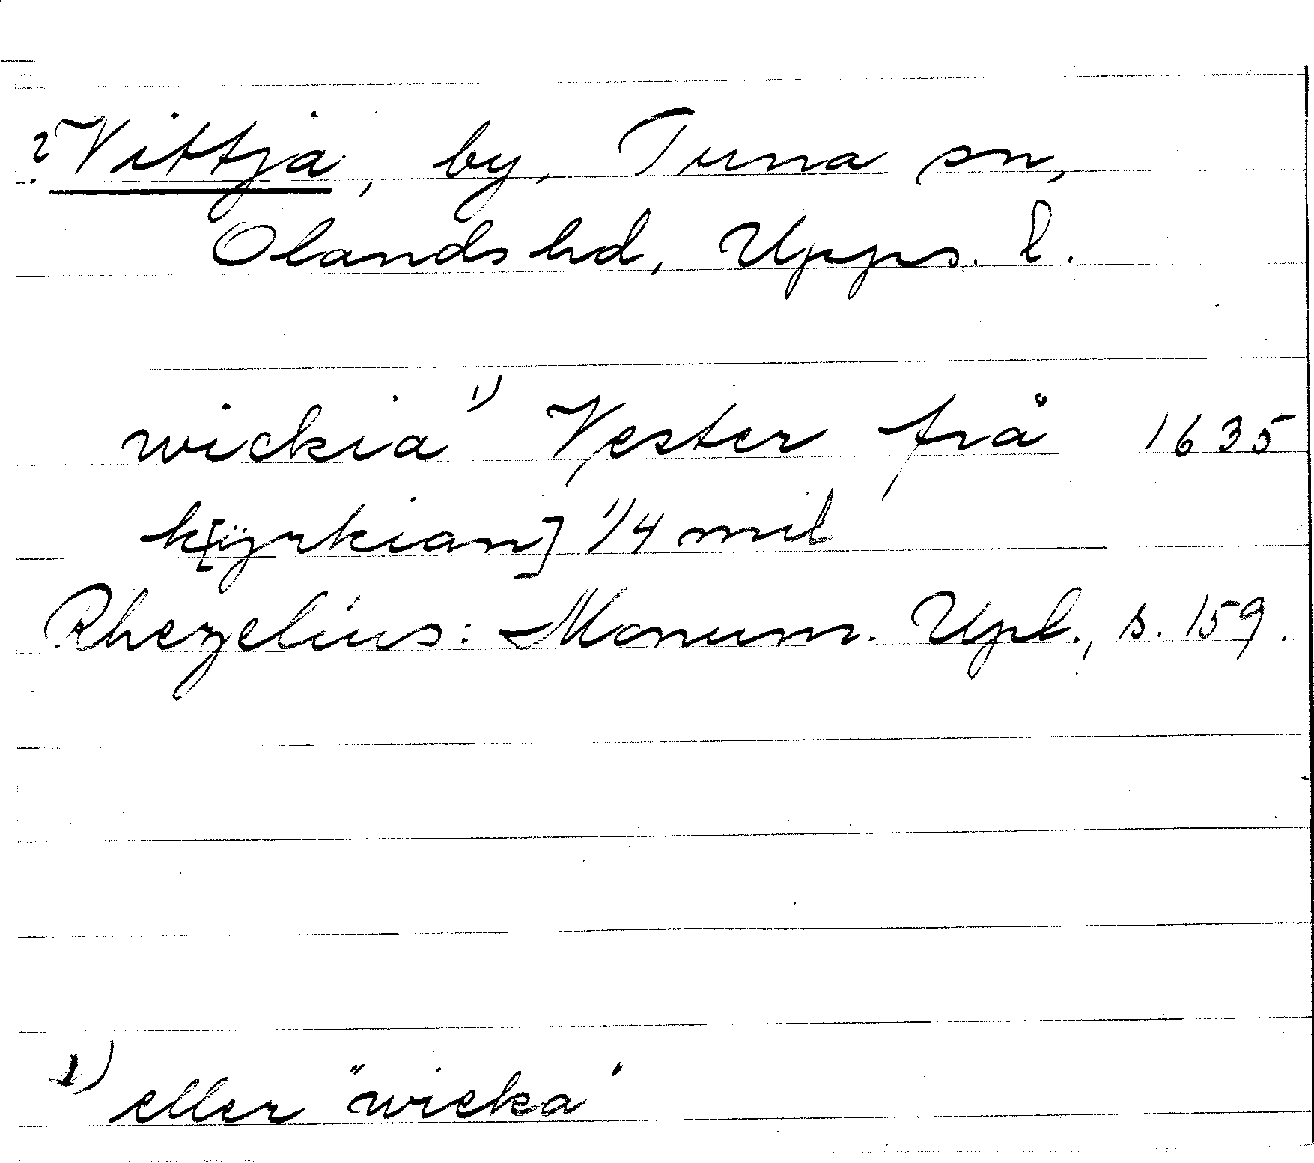 ?Vittja, by, Tuna sn,
Olands hd, Upps. l.
wickia 1) Vester frå 1635
k[ÿrkian] 1/4 mil
Rhezelius: Monum. Upl., s. 159.
1) eller "wicka"